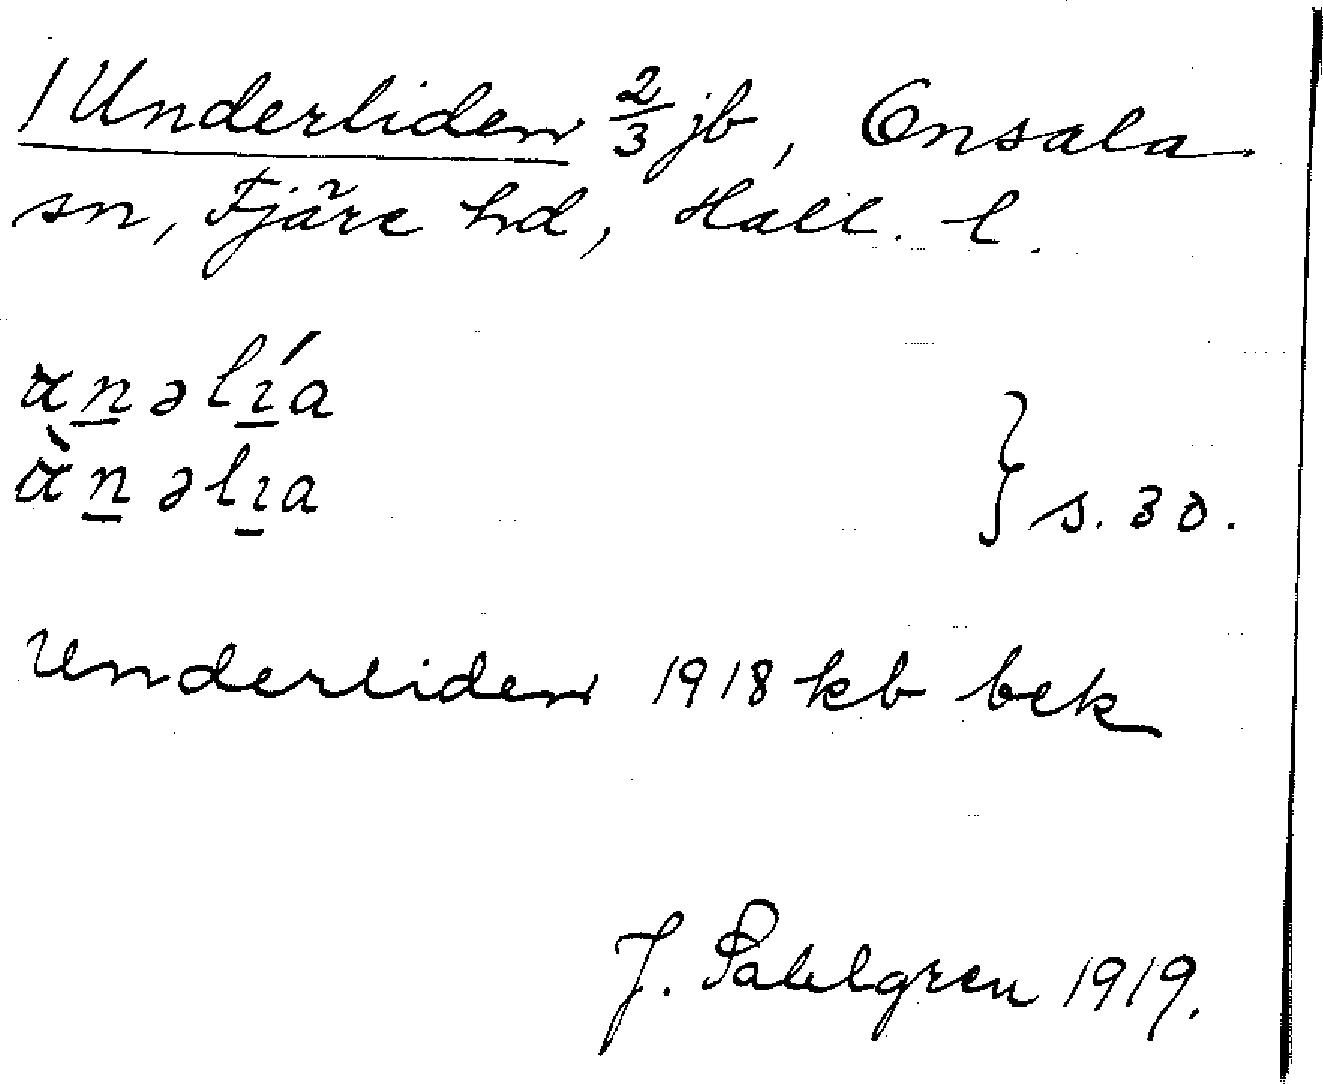 /Underliden 2/3 jb, Onsala
sn, Fjäre hd, Hall. l.
ɑn̲əlɪ̲́a
ɑ̀n̲əlɪ̲a } s. 30.
Underliden 1918 kb bek
J. Sahlgren 1919.